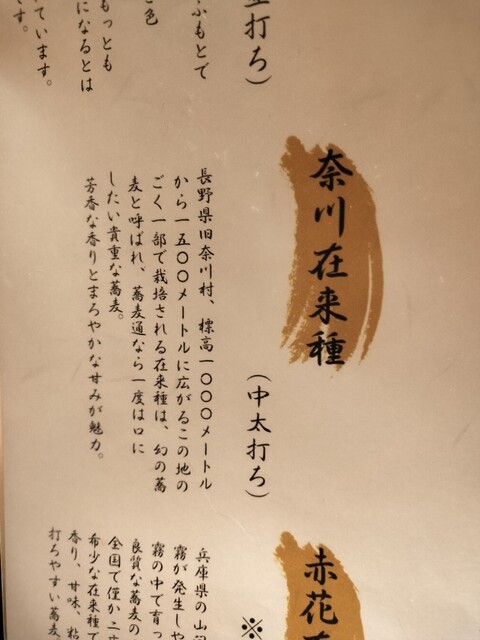 打ち)
ふもとで
色
もっとも
になるとは
ています。
す。
奈川在来種
(中太打ち)
長野県旧奈川村、標高一〇〇〇メートル
から一五〇〇メートルに広がるこの地の
ごく一部で栽培される在来種は、幻の蕎
麦と呼ばれ、蕎麦通なら一度は口に
したい貴重な蕎麦。
芳香な香りとまろやかな甘みが魅力。
赤花
※
兵庫県の山
霧が発生しや
霧の中で育っ
良質な蕎麦の
全国で僅か二
希少な在来種で
香り、甘味、粘
打ちやすい蕎麦